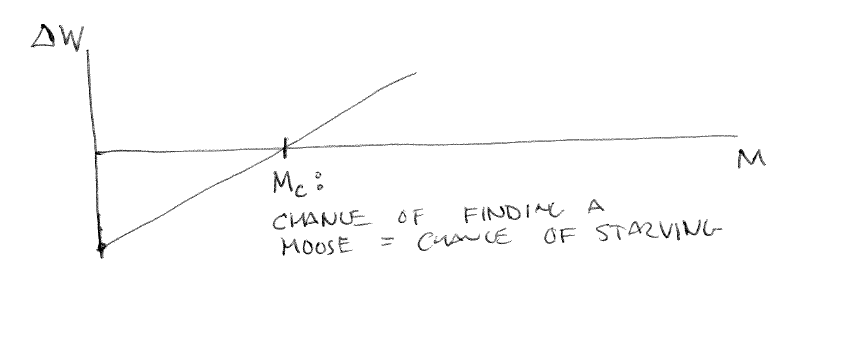 ΔW
M
Mc:
CHANCE OF FINDING A
MOOSE = CHANCE OF STARVING